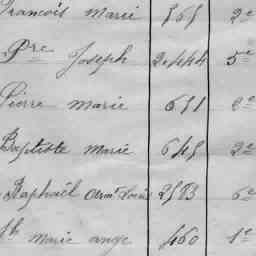 François Marie 565 2e
Pre Joseph 2.444 5e
Pierre Marie 611 2e
Baptiste Marie 645 2e
Raphaël Arm. Louis 2583 6e
Marie ange 460 1e